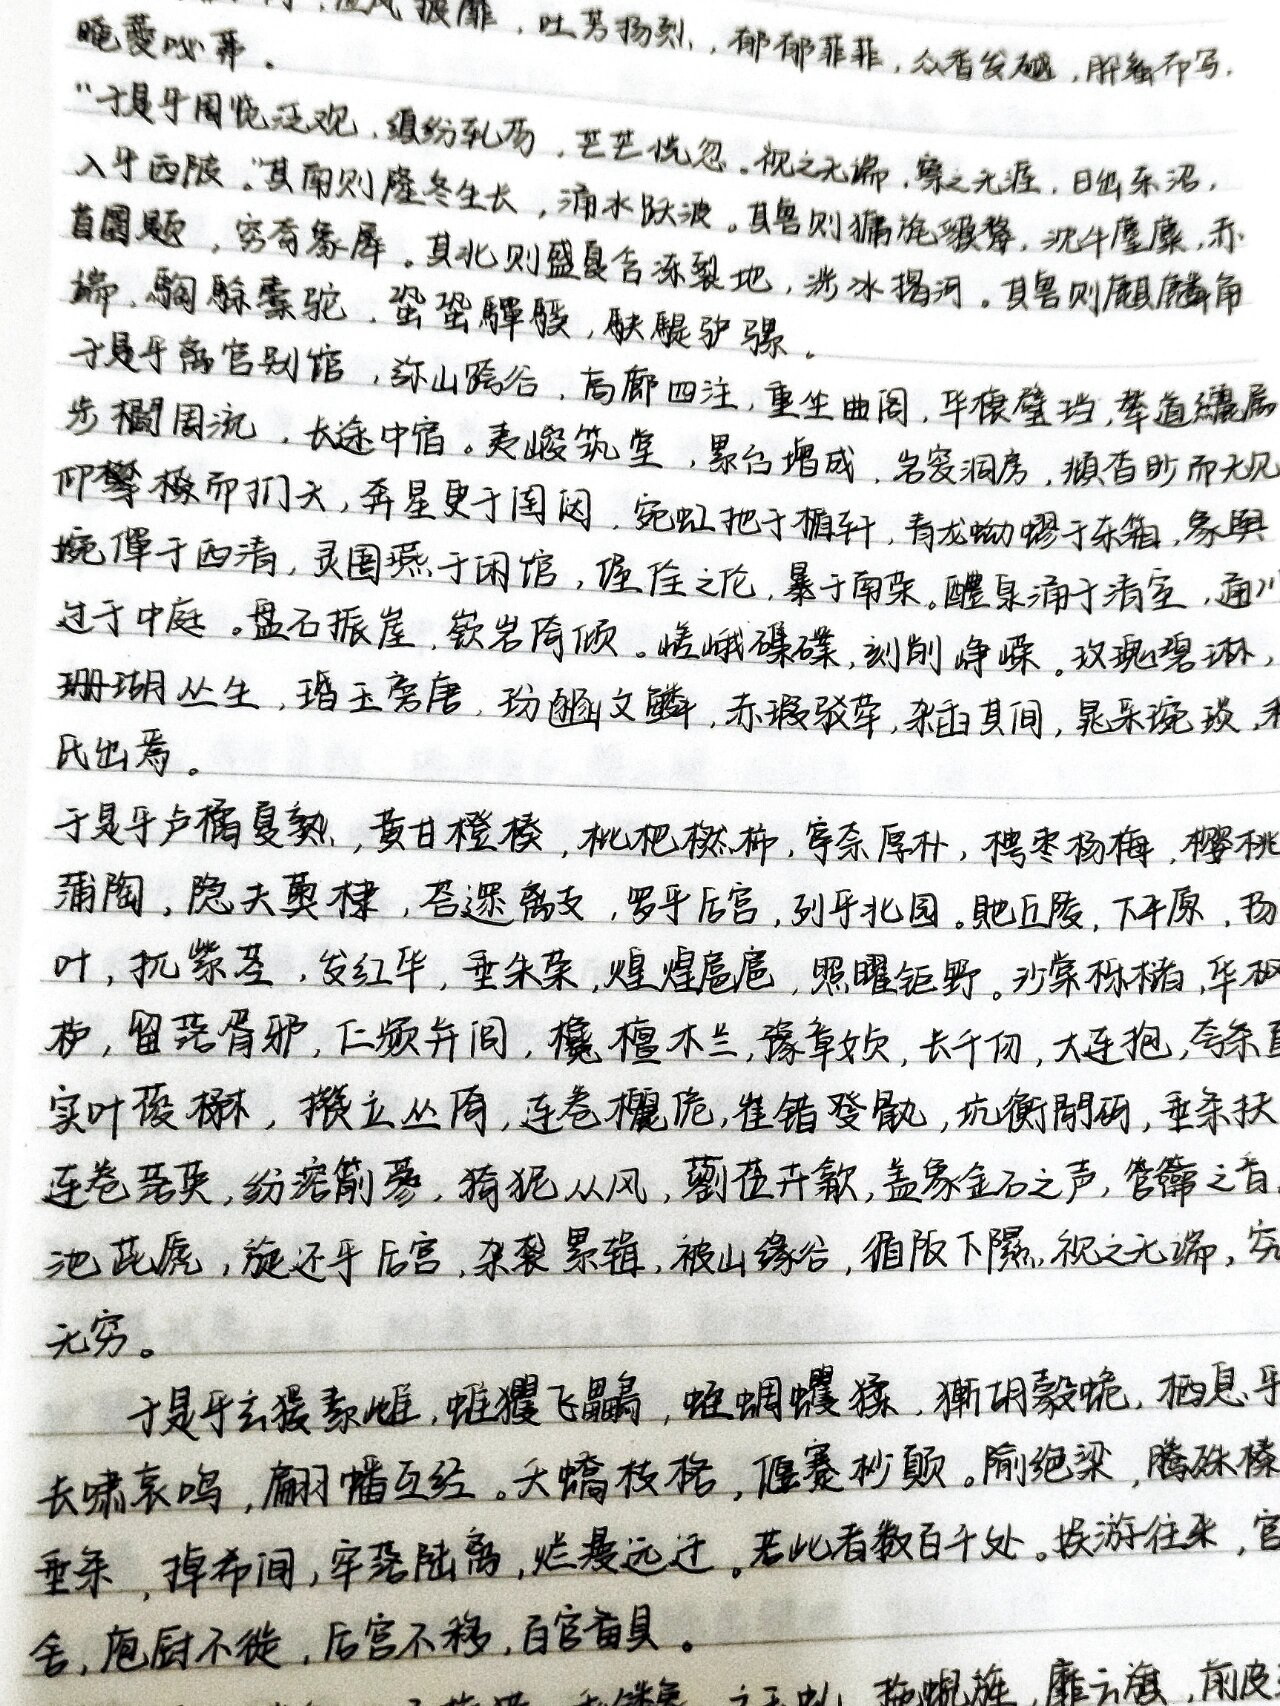 披靡，吐芳扬烈，郁郁菲菲，众香发越，肸蚃布写，
晻薆咇茀。
“于是乎周览泛观，缜纷轧芴，芒芒恍忽。视之无端，察之无涯，日出东沼，
入乎西陂。“其南则隆冬生长，涌水跃波。其兽则㺎旄貘犛，沈牛麈麋，赤
首圜题，穷奇象犀。其北则盛夏含冻裂地，涉冰揭河。其兽则麒麟角
端，騊駼橐驼，蛩蛩驒騱，駃騠驴骡。
于是乎离宫别馆，弥山跨谷，高廊四注，重坐曲阁，华榱璧珰，辇道纚属
步櫩周流，长途中宿。夷嵕筑堂，累台增成，岩窔洞房，頫杳眇而无见
仰攀橑而扪天，奔星更于闺闼，宛虹扡于楯轩，青龙蚴蟉于东箱，象舆
婉僤于西清，灵圄燕于闲馆，偓佺之伦，暴于南荣。醴泉涌于清室，通川
过于中庭。盘石振崖，嵚岩倚倾。嵯峨磼碟，刻削峥嵘。玫瑰碧琳，
珊瑚丛生，瑉玉旁唐，玢豳文鳞，赤瑕驳荦，杂臿其间，晁采琬琰，和
氏出焉。
于是乎卢橘夏熟，黄甘橙楱，枇杷橪柿，亭奈厚朴，梬枣杨梅，樱桃
蒲陶，隐夫薁棣，荅遝离支，罗乎后宫，列乎北园。貤丘陵，下平原，扬
叶，扤紫茎，发红华，垂朱荣，煌煌扈扈，照曜钜野。沙棠栎槠，华枫
栌，留落胥邪，仁频并闾，欃檀木兰，豫章女贞，长千仞，大连抱，夸条直
实叶葰楙，攒立丛倚，连卷欐佹，崔错癹骫，坑衡閜砢，垂条扶
连卷落英，纷溶萷蔘，猗狔从风，藰莅卉歙，盖象金石之声，管籥之音。
池茈虒，旋还乎后宫，杂袭累辑，被山缘谷，循阪下隰，视之无端，究
无穷。
于是乎玄猨素雌，蜼玃飞鸓，蛭蜩蠼猱，獑胡豰蛫，栖息乎
长啸哀鸣，翩幡互经。夭蟜枝格，偃蹇杪颠。隃绝梁，腾殊榛
垂条，掉希间，牢落陆离，烂漫远迁。若此者数百千处。娱游往来，宫
舍，庖厨不徙，后宫不移，百官备具。
拖蜺旌，靡云旗，前皮